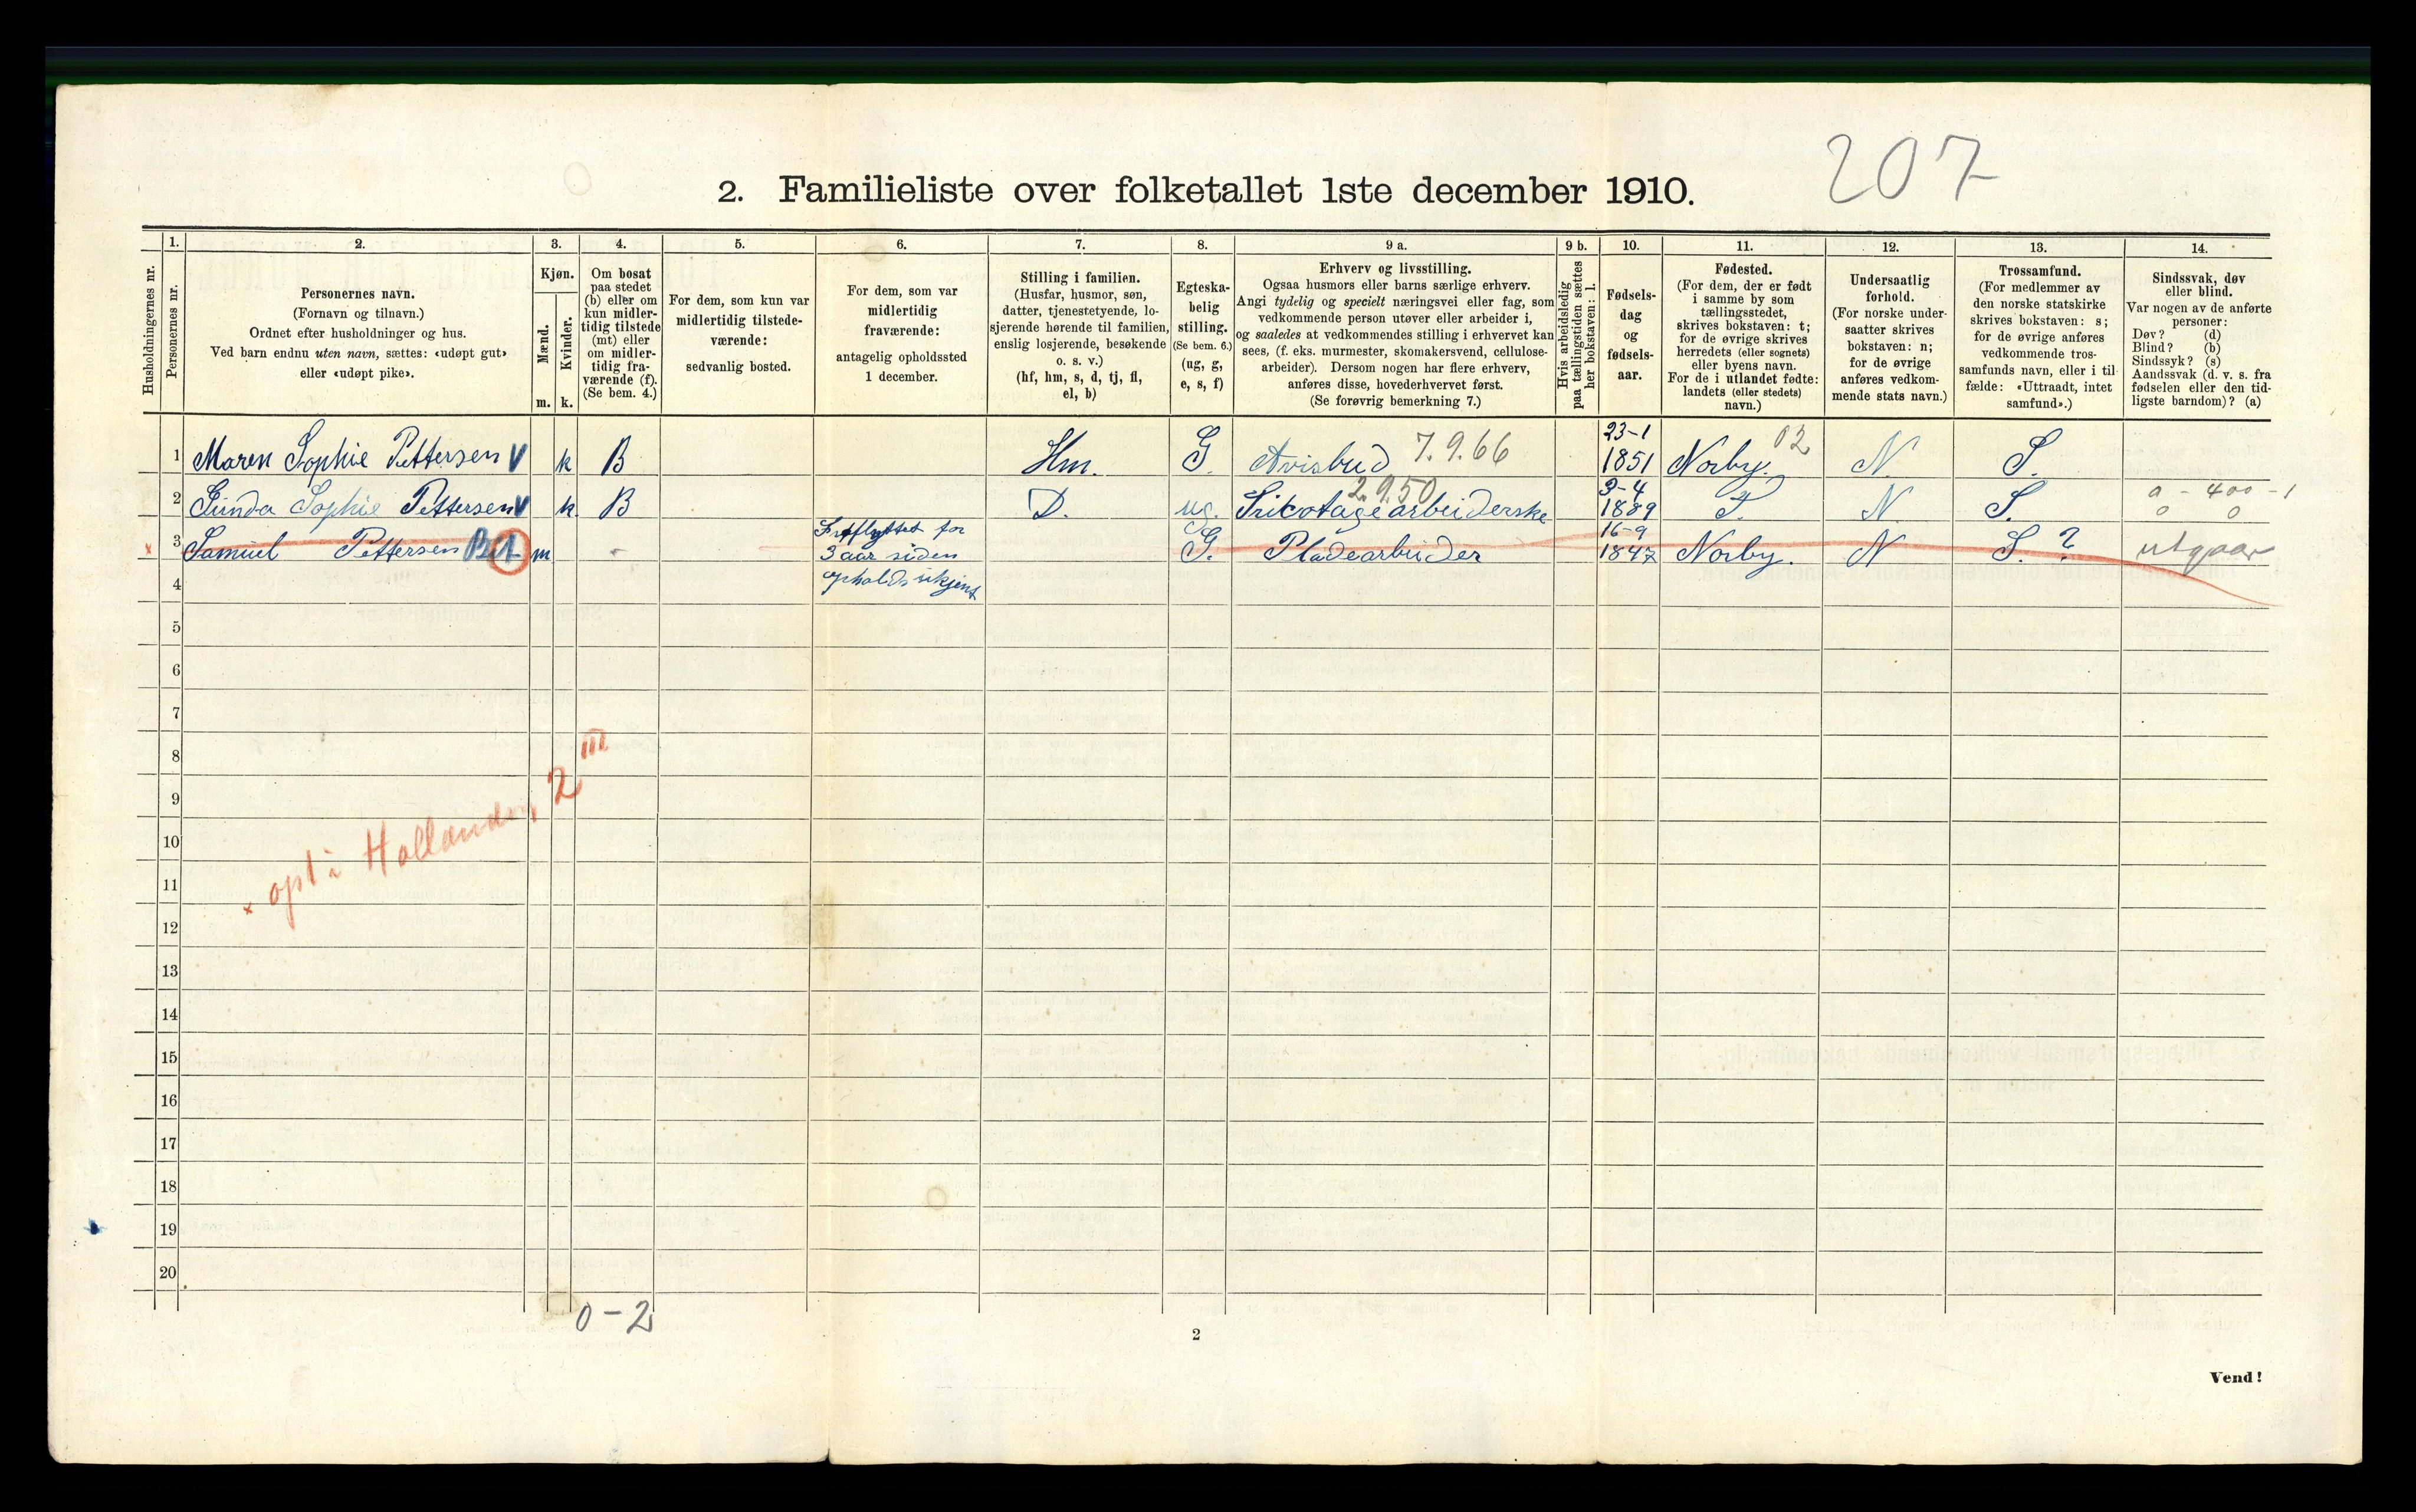 207
2. Familieliste over folketallet 1ste december 1910.
Husholdningernes nr.
1.
Personernes nr.
2.
Personernes navn.
(Fornavn og tilnavn.)
Ordnet efter husholdninger og hus.
Ved barn endnu uten navn, sættes: «udøpt gut»
eller «udøpt pike».
3.
Kjøn.
Mænd.
m.
Kvinder.
k.
4.
Om bosat
paa stedet
(b) eller om
kun midler-
tidig tilstede
(mt) eller
om midler-
tidig fra-
værende (f).
(Se bem. 4.)
5.
For dem, som kun var
midlertidig tilstede-
værende:
sedvanlig bosted.
6.
For dem, som var
midlertidig
fraværende:
antagelig opholdssted
1 december.
7.
Stilling i familien.
(Husfar, husmor, søn,
datter, tjenestetyende, lo-
sjerende hørende til familien,
enslig losjerende, besøkende
o. s. v.)
(hf, hm, s, d, tj, fl,
el, b)
8.
Egteska-
belig
stilling.
(Se bem. 6.)
(ug, g,
e, s, f)
9 a.
Erhverv og livsstilling.
Ogsaa husmors eller barns særlige erhverv.
Angi tydelig og specielt næringsvei eller fag, som
vedkommende person utøver eller arbeider i,
og saaledes at vedkommendes stilling i erhvervet kan
sees, (f. eks. murmester, skomakersvend, cellulose-
arbeider). Dersom nogen har flere erhverv,
anføres disse, hovederhvervet først.
(Se forøvrig bemerkning 7.)
9 b.
Hvis arbeidsledig
paa tællingstiden sættes
her bokstaven: l.
10.
Fødsels-
dag
og
fødsels-
aar.
11.
Fødested.
(For dem, der er født
i samme by som
tællingsstedet,
skrives bokstaven: t;
for de øvrige skrives
herredets (eller sognets)
eller byens navn.
For de i utlandet fødte:
landets (eller stedets)
navn.)
12.
Undersaatlig
forhold.
(For norske under-
saatter skrives
bokstaven: n;
for de øvrige
anføres vedkom-
mende stats navn.)
13.
Trossamfund.
(For medlemmer av
den norske statskirke
skrives bokstaven: s;
for de øvrige anføres
vedkommende tros-
samfunds navn, eller i til-
fælde: «Uttraadt, intet
samfund».)
14.
Sindssvak, døv
eller blind.
Var nogen av de anførte
personer:
Døv? (d)
Blind? (b)
Sindssyk? (s)
Aandssvak (d. v. s. fra
fødselen eller den tid-
ligste barndom)? (a)
1 Maren Sophie Pettersen V k B Hm. G. Avisbud 7.9.66 23-1 1851 Norby. 02 N. S.
2 Sophie Pettersen V k. B D. ug. Tricotagearbeiderske 2.9.50 3-4 1889 T. N. S. 0 - 400 - 1
0 0
3 Samuel Pettersen m - Fraflyttet for
3 aar siden
opholds ukjent
G. Pladearbeider 16-9 1847 Norby. N S. ? utgaar
4
5
6
7
8
9
10
11
12
13
14
15
16
17
18
19
20
x opt i Hollanderg 2 III
0-2
2
Vend!